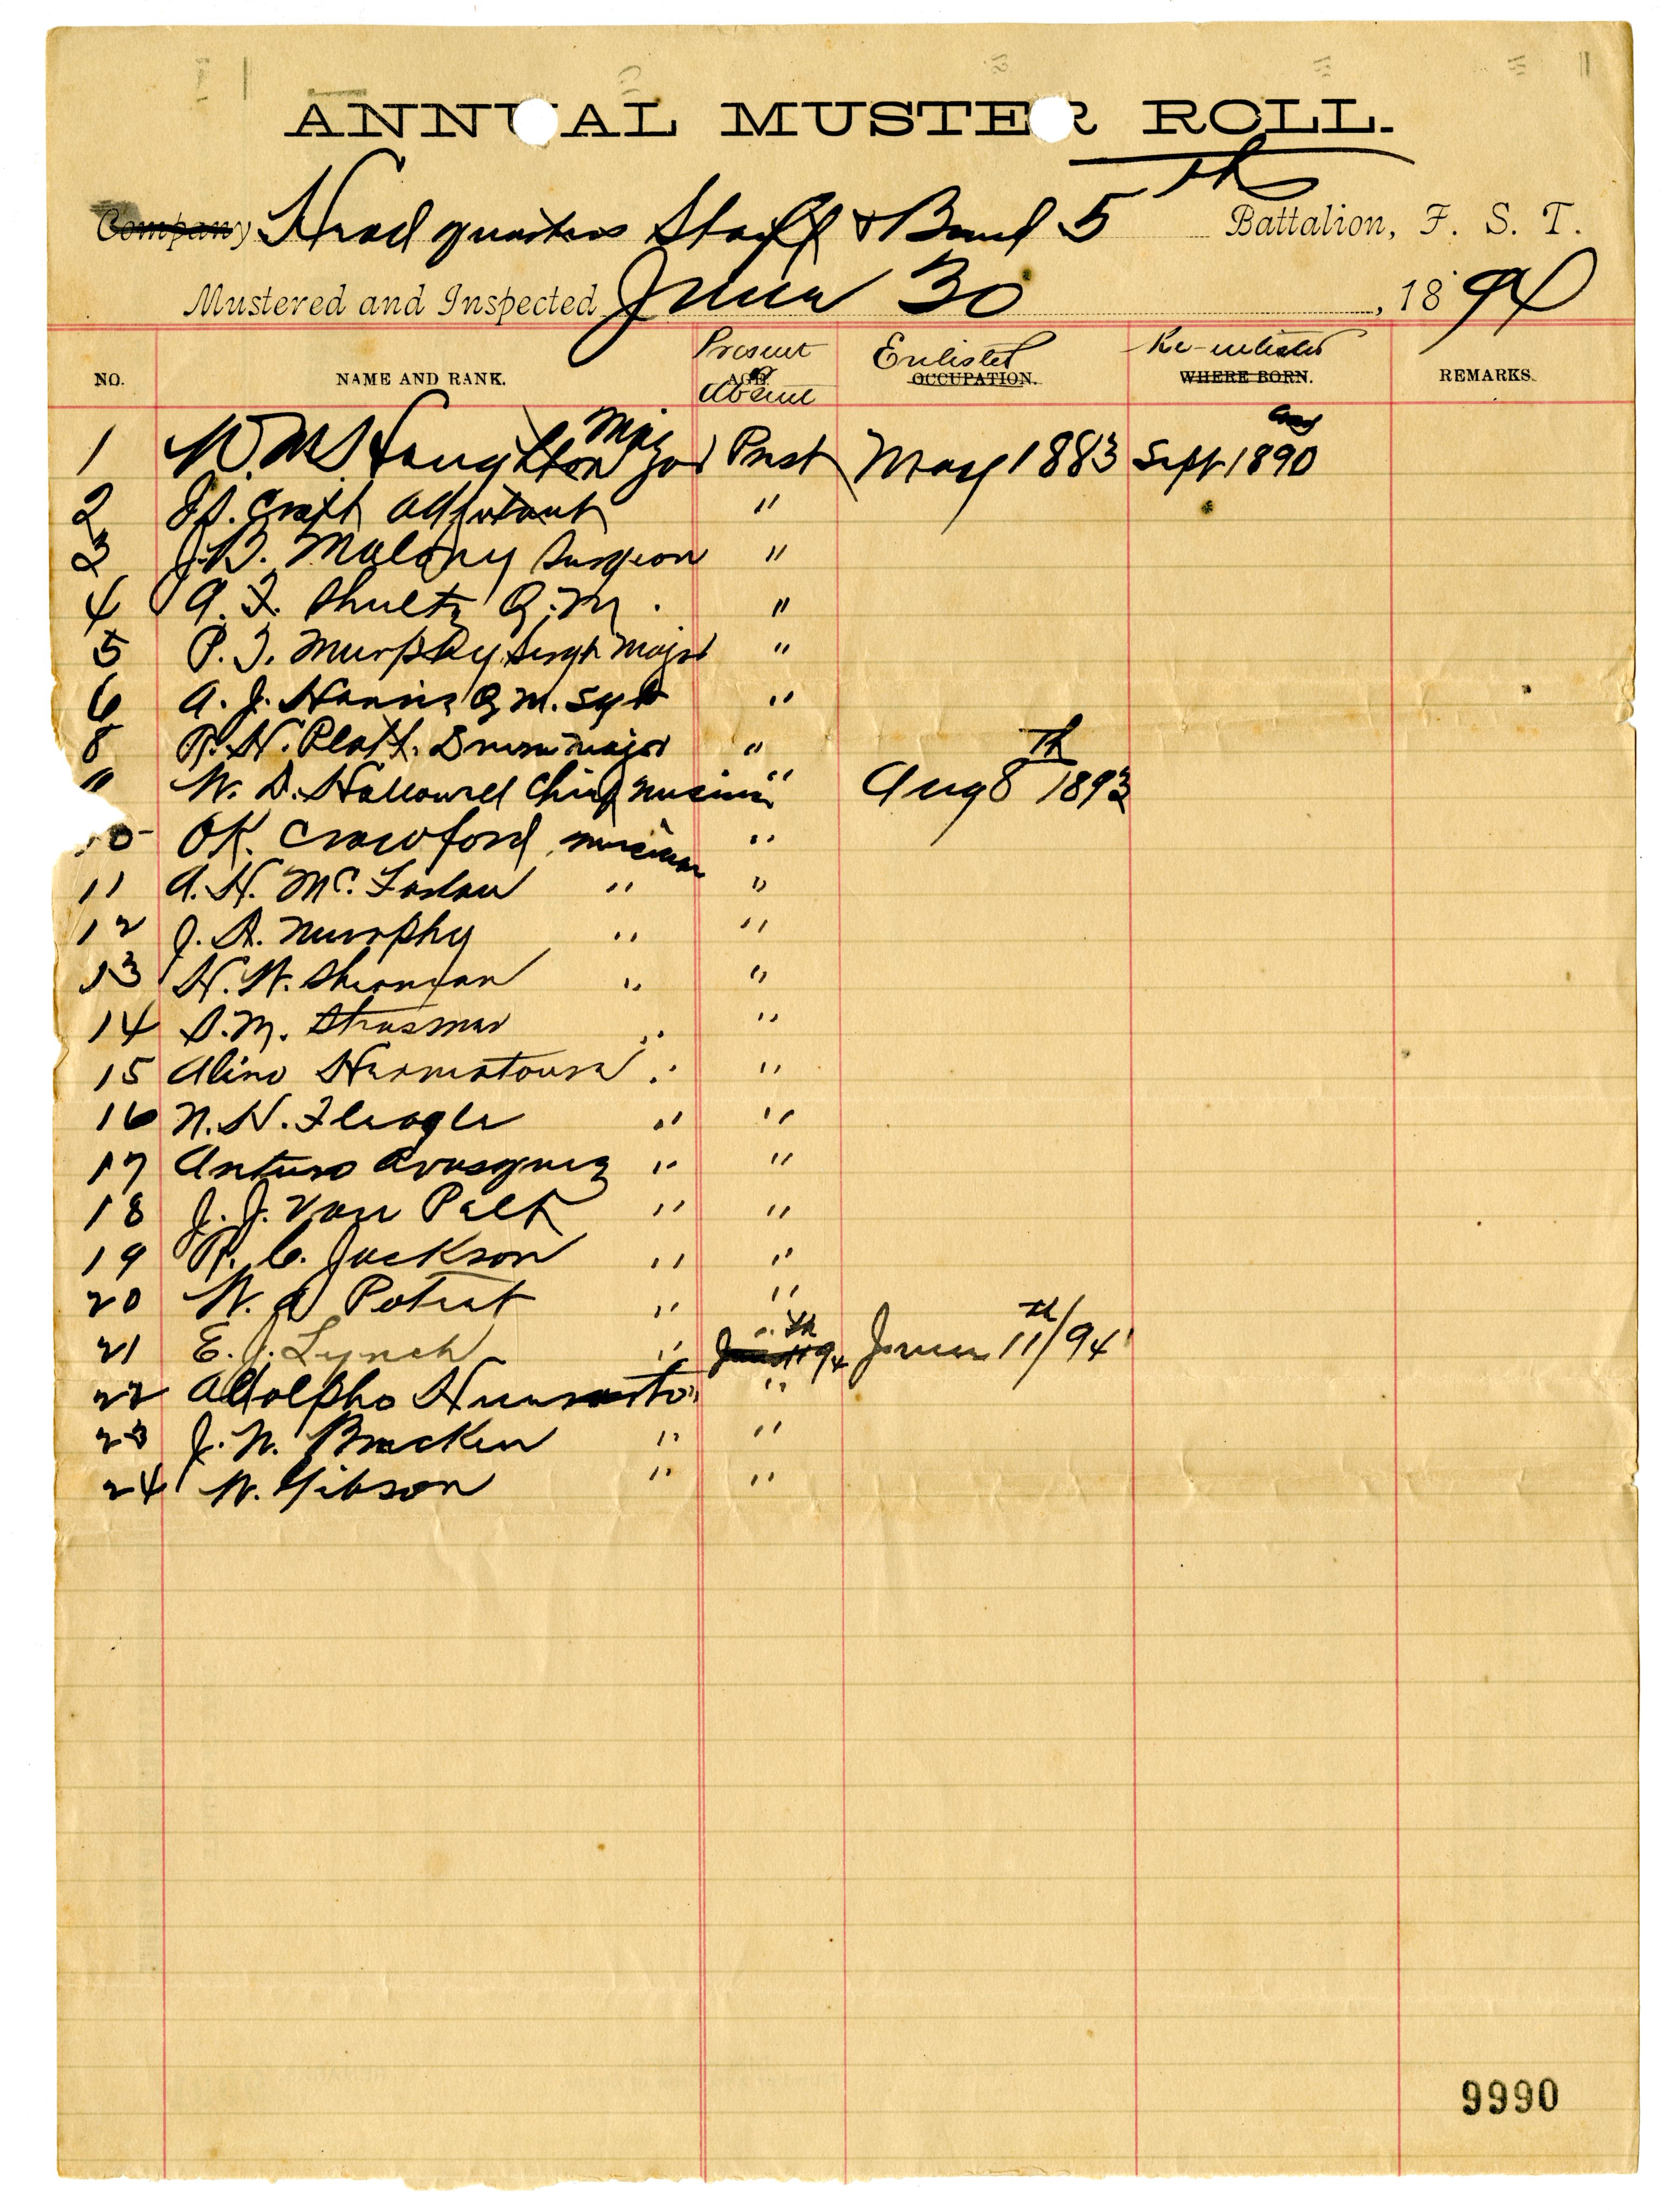 ANNUAL MUSTER ROLL.
Company Head quarters Staff & Band 5th Battalion, F. S. T.
Mustered and Inspected June 30, 1894
NO. NAME AND RANK. Present AGE. Absent Enlisted OCCUPATION. Re-enlisted WHERE BORN. REMARKS.
1 W. M. Haughton Major Prst May 1883 Sept 1890
2 Craft Adjutant "
3 J. B. Malony Surgeon "
4 A. F. Shultz Q. M. "
5 P. J. Murphy Sergt Major "
6 A. J. Harris Q M. Sgt "
8 R. H. Platt. Drum major "
W. D. Hallowell Chief " Aug 8th 1893
10 OK. Crawford musician "
11 A. H. Mc. " "
12 J. A. Murphy " "
13 H. W. Sherman " "
14 S. M. " "
15 Alino " "
16 N. H. Fleagle " "
17 Arturo " "
18 J. J. Van Pelt " "
19 R. C. Jackson " "
20 W. A Poteet " "
21 E. J. Lynch " " June 11th/94
22 Adolpho "
23 J. W. Bracken " "
24 W. Gibson " "
9990